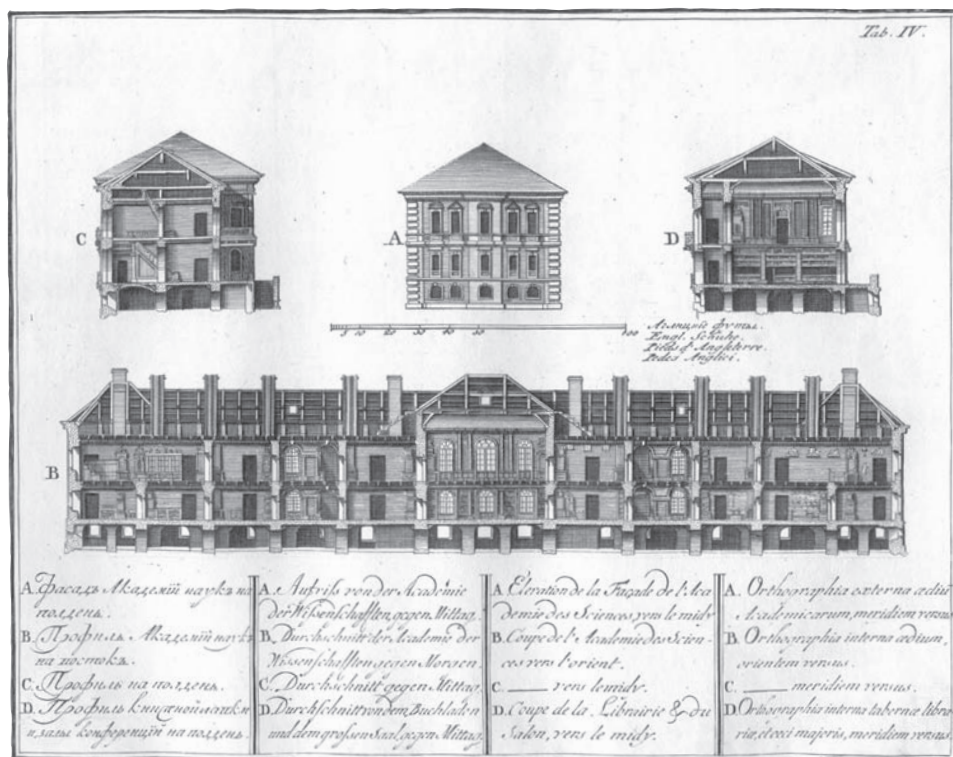 Tab. IV.
C
A
D
5 10 20 30 40 50 100
футы.
Engl. Schuhe.
Pieds d'Angleterre.
Pedes Anglici.
B
A. Фасадъ Академїи наукъ на
полдень.
B. Профиль Академїи наукъ
на востокъ.
C. Профиль на полдень.
D. Профиль книжной лавки
и залы конференцїи на полдень.
A. Aufriss von der Academie
der Wissenschafften gegen Mittag.
B. Durchschnitt der Academie der
Wissenschafften gegen Morgen.
C. Durchschnitt gegen Mittag.
D. Durchschnitt von dem Buchladen
und dem grossen Saal gegen Mittag.
A. Elevation de la Façade de l'Aca
demie des Sciences vers le midy
B. Coupe de l'Academie des Scien-
ces vers l'orient.
C. ___ vers le midy.
D. Coupe de la Librairie & du
Salon, vers le midy.
A. Orthographia externa ædium
Academicarum, meridiem versus
B. Orthographia interna ædium,
orientem versus.
C. ___ meridiem versus.
D. Orthographia interna tabernæ libra-
riæ, et oeci majoris, meridiem versus.